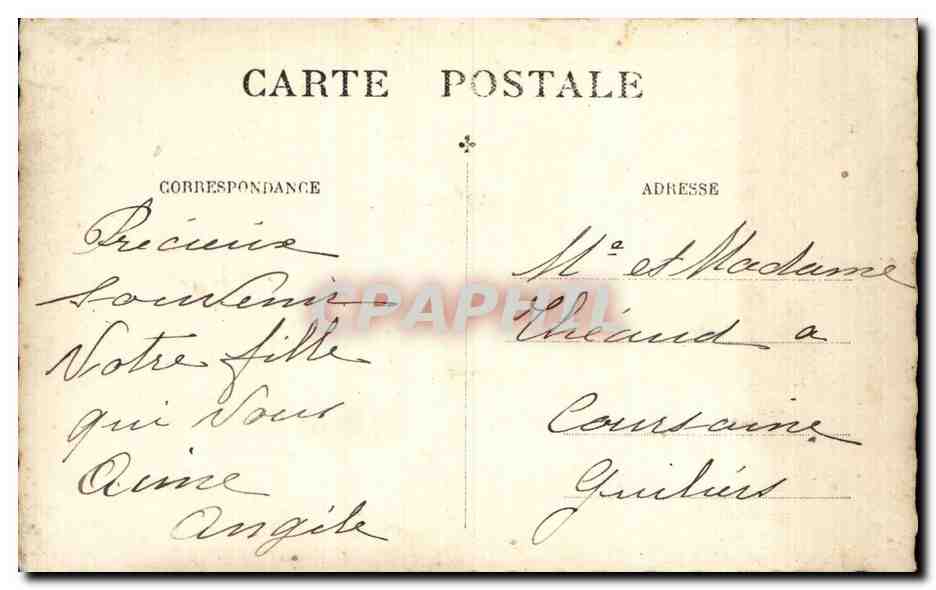 CARTE POSTALE
CORRESPONDANCE
Précieux
souvenir
Votre fille
qui vous
aime
Angèle
ADRESSE
Mr et Madame
Théaud a
Coursaine
Guiliers
CPAPHIL